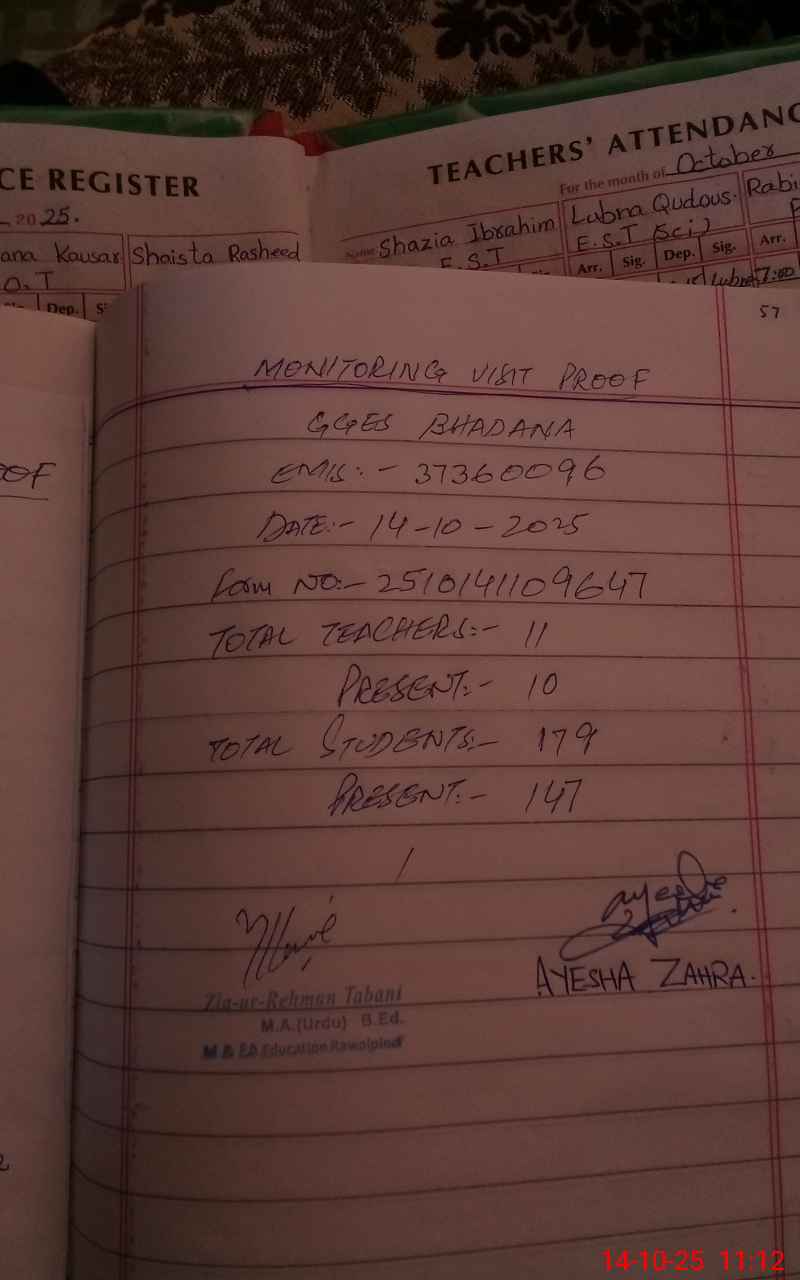 CE REGISTER
2025.
ana Kausar Shaista Rasheed
O.T
Dep.
TEACHERS' ATTENDANC
For the month of October
Name Shazia Ibrahim Lubna Qudous. Rabi
E.S.T E.S.T (Sci)
Arr. Sig. Dep. Sig. Arr.
Lubna 7:00
57
MONITORING VISIT PROOF
GGES BHADANA
EMIS:- 37360096
DATE:- 14-10-2025
Form NO:- 2510141109647
TOTAL TEACHERS:- 11
PRESENT:- 10
TOTAL STUDENTS:- 179
PRESENT:- 147
OOF
AYESHA ZAHRA.
Zia-ur-Rehman Tabani
M.A.(Urdu) B.Ed.
M & EA Education Rawalpindi
14-10-25 11:12